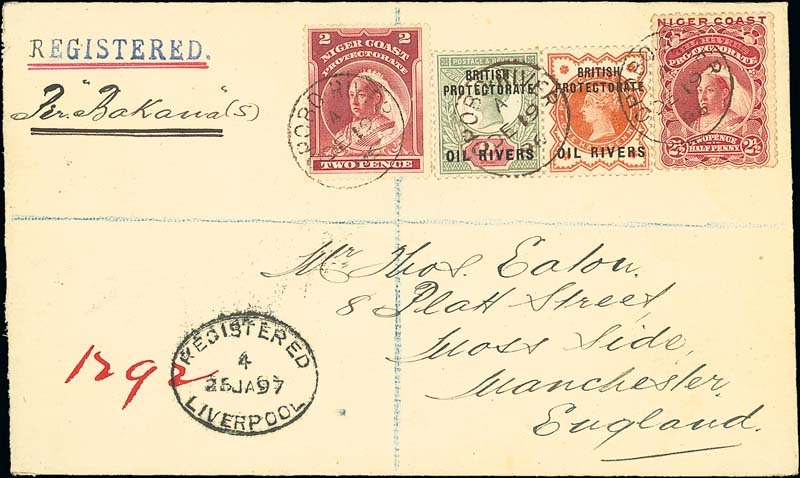 REGISTERED.
Per. "Bakana" (s)
2 2
NIGER COAST
PROTECTORATE
TWO PENCE
POSTAGE & REVENUE
BRITISH
PROTECTORATE
OIL RIVERS
BRITISH
PROTECTORATE
OIL RIVERS
NIGER COAST
PROTECTORATE
TWOPENCE
HALF PENNY
2½ 2½
Mr Thos. Eaton.
8 Platt Street,
Moss Side,
Manchester,
England.
1292
REGISTERED
4
25JA97
LIVERPOOL